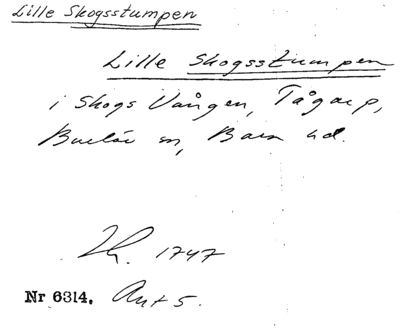 Lille Skogsstumpen
Lille Skogsstumpen
i Skogs Vången, Tågarp,
Burlöv sn, Bara hd.
1747
Nr 6314. Akt 5.